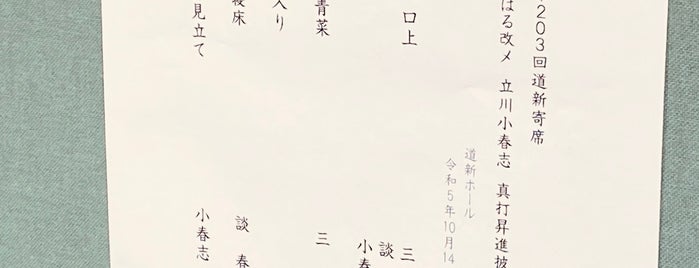 203回道新寄席
はる改メ 立川小春志 真打昇進披
道新ホール
令和5年10月14
口上
三
談
小春
青菜
三
入り
寝床
談 春
見立て
小春志